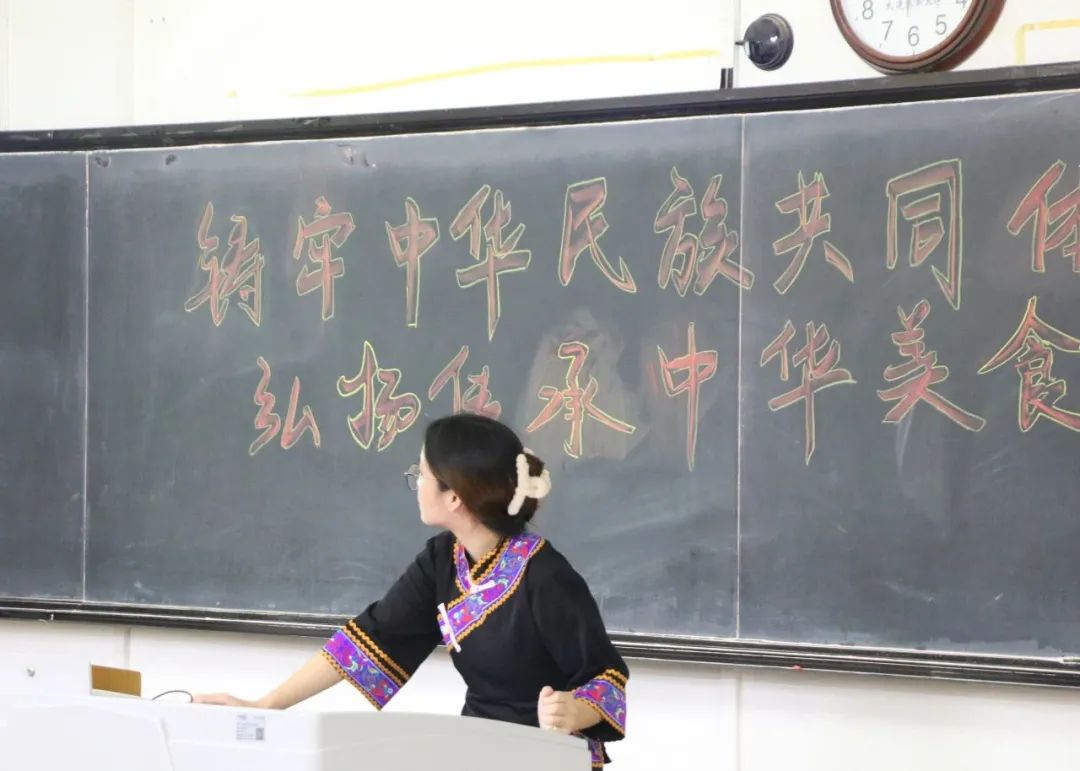 8 7 6 5 4
铸牢中华民族共同体
弘扬传承中华美食